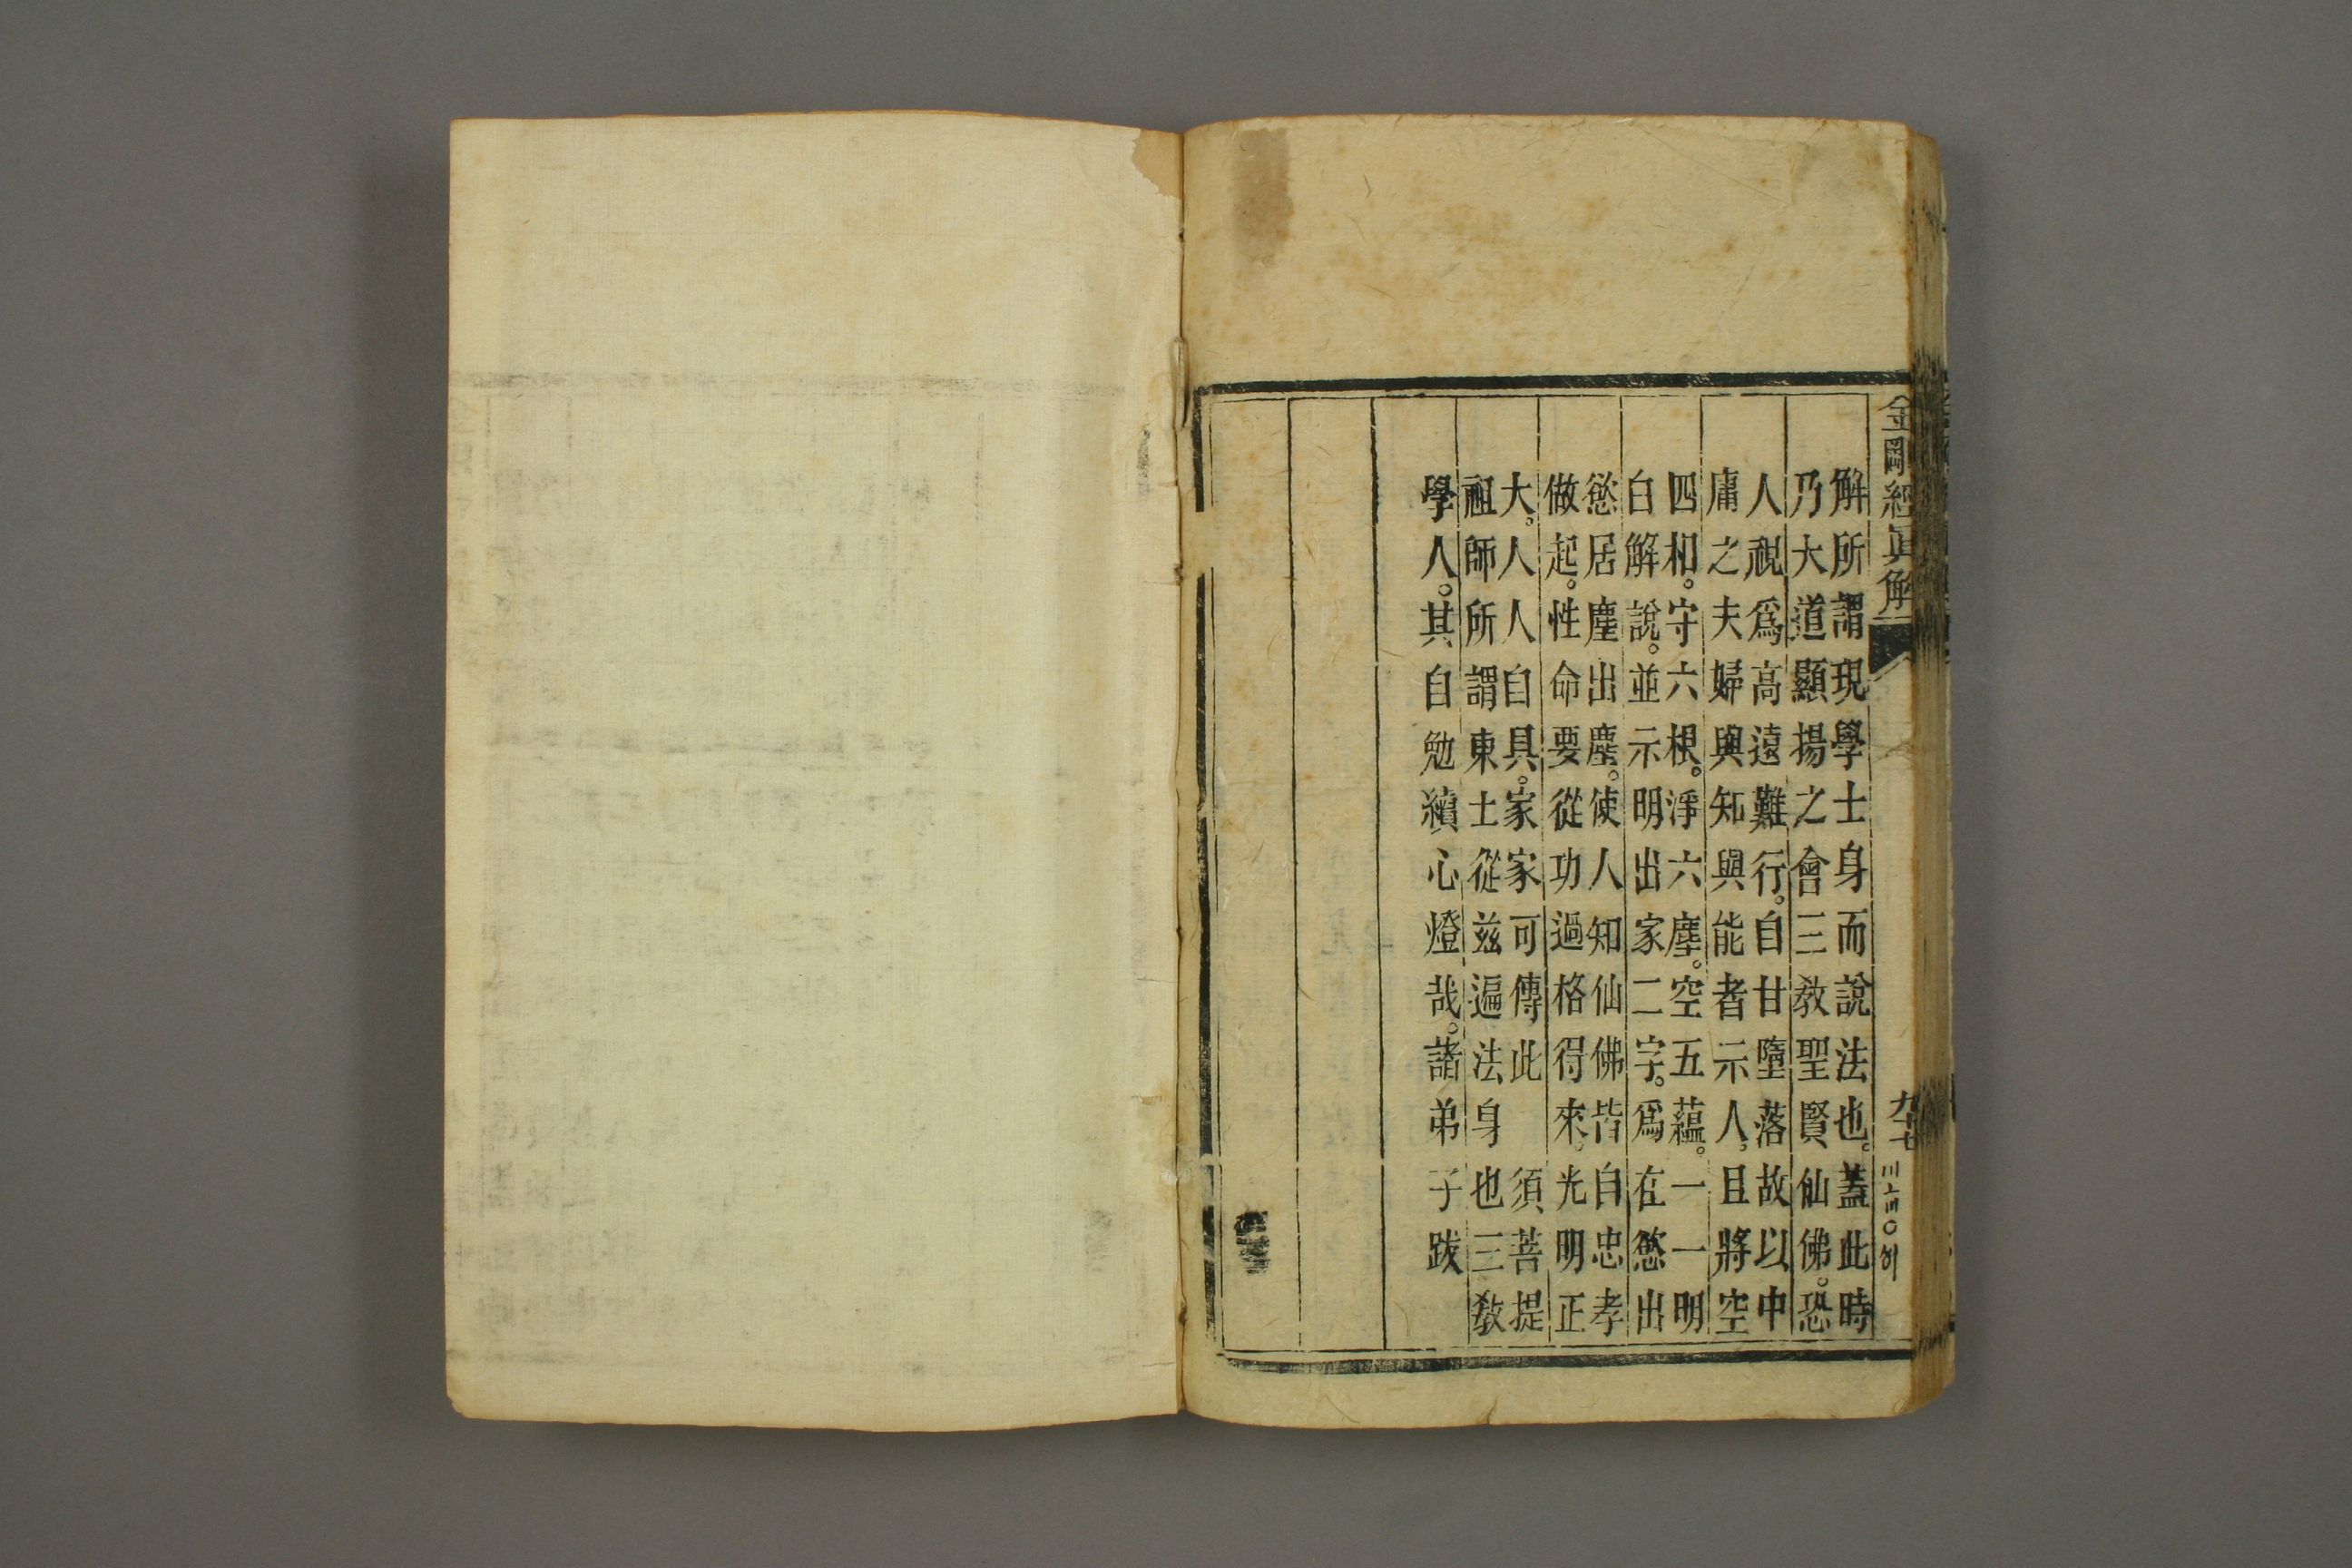 金剛經眞解
九十七
解所謂現學士身而說法也。蓋此時
乃大道顯揚之會三敎聖賢仙佛。恐
人視爲高遠難行。自甘墮落故以中
庸之夫婦與知與能者示人。且將空
四相。守六根。淨六塵。空五蘊。一一明
白解說。並示明出家二字。爲在慾出
慾居塵出塵。使人知仙佛皆自忠孝
做起。性命要從功過格得來。光明正
大。人人自具。家家可傳此 須菩提
祖師所謂東土從茲遍法身也三敎
學人。其自勉續心燈哉。諸弟子跋